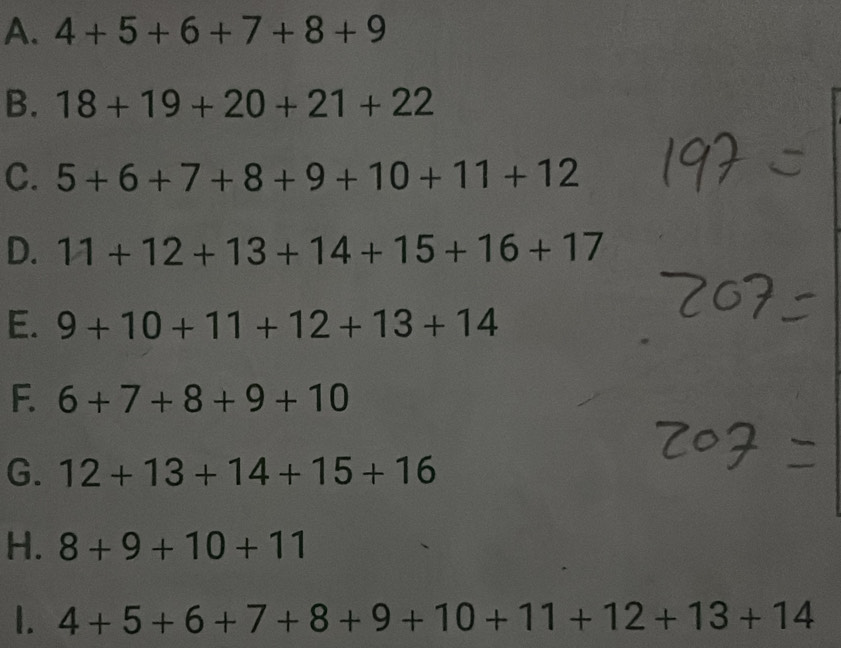 A. 4 + 5 + 6 + 7 + 8 + 9
B. 18 + 19 + 20 + 21 + 22
C. 5 + 6 + 7 + 8 + 9 + 10 + 11 + 12
197 =
D. 11 + 12 + 13 + 14 + 15 + 16 + 17
207 =
E. 9 + 10 + 11 + 12 + 13 + 14
F. 6 + 7 + 8 + 9 + 10
207 =
G. 12 + 13 + 14 + 15 + 16
H. 8 + 9 + 10 + 11
I. 4 + 5 + 6 + 7 + 8 + 9 + 10 + 11 + 12 + 13 + 14